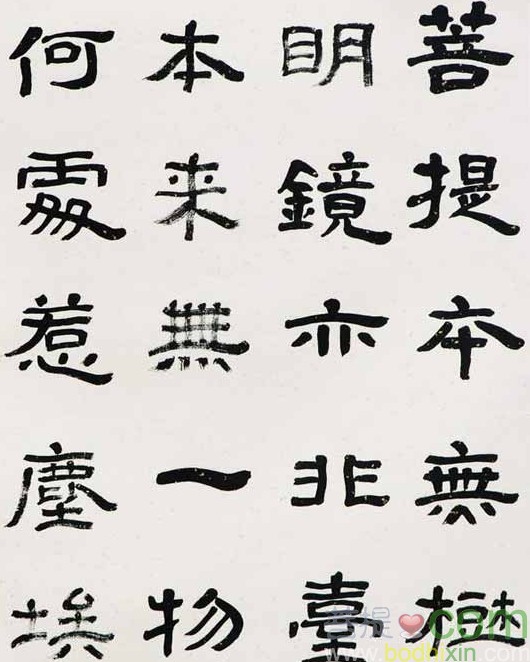 菩提本無樹
明鏡亦非臺
本来無一物
何處惹塵埃
菩提❤com
www.bodhixin.com